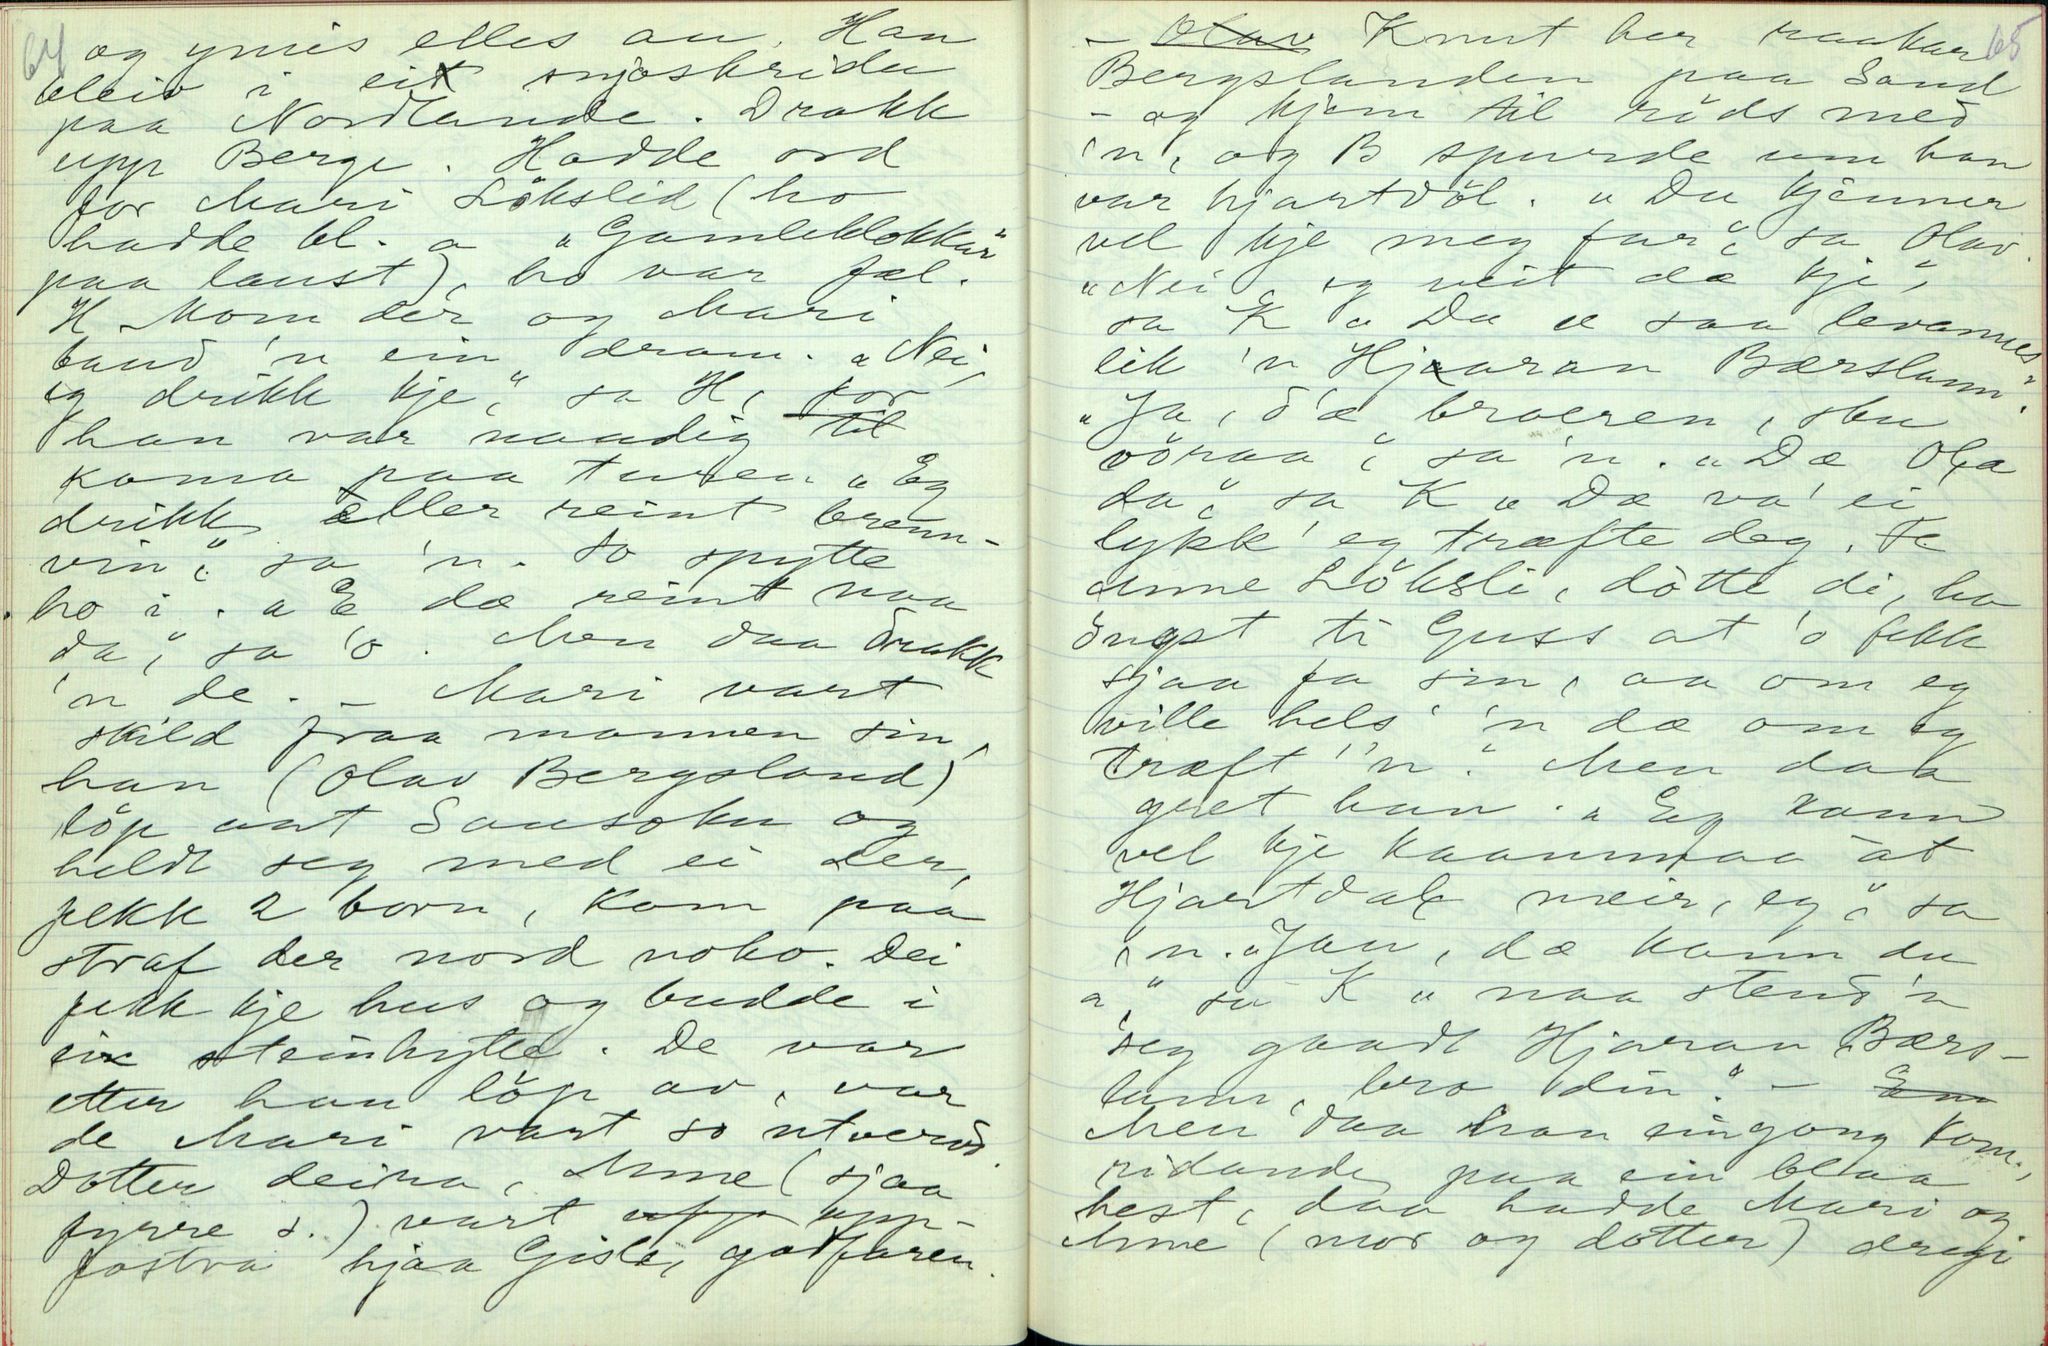 64
og ymis elles au. Han
bleiv i eit snjoskridu
paa Nordlande. Drakk
upp Berge. Hadde ord
for Mari Lökslid (ho
hadde bl. a „Gamleklokkar"
paa laust), ho var fæl.
H. kom der og Mari
baud 'n ein dram. „Nei,
eg drikk kje," sa H, for
han var naadig til
koma paa turen „Eg
drikk eller reint brenn-
vin," sa 'n. So spytte
ho i. „E dæ reint naa
da," sa 'o. Men daa drakk
'n de. – Mari vart
skild fraa mannen sin,
han (Olav Bergsland)
löp ant Sausoku og
heldt seg med ei der,
fekk 2 born, kom paa
straf der nord noko. Dei
fekk kje hus og budde i
ei steinhytte. De var
etter han löp av, var
de Mari vart so utverd.
Dotter deira, Anne (sjaa
fyrre s.) vart upp-
fostra hjaa Gisle, godfaren.
65
– Olav Knut her raakar
Bergslanden paa Sand
– og kjem til råds med
'n, og B spurde um han
var hjartdöl. „Du kjenner
vel kje meg far", sa Olav.
„Nei, eg veit dæ kje,"
sa K „Du æ saa levannes
lik 'n Hjaaran Bærslann."
„Ja, d'æ broeren, sku
vöraa", sa 'n. „Dæ Ola
da," sa K „Dæ va' ei
lykk' eg træfte deg. Fe
Anne Löksli, dötte di, ho
öngst ti Guss at 'o fekk
sjaa fa sin, aa om eg
ville hels' 'n dæ om eg
træft 'n." Men daa
gret han. „Eg kann
vel kje kaamaa at
Hjartdal meir, eg", sa
'n. „Jau, dæ kann du
a", sa K „naa stend 'n
seg gaadt Hjaran Bærs-
lann, bro din." –
Men daa han eingong kom
ridande paa ein blaa
hest, daa hadde Mari og
Anne (mor og dotter) dregi